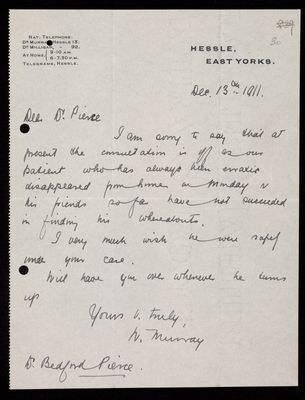 NAT. TELEPHONE.
DR MURRAY, HESSLE 13.
DR MILLIGAN, " 92.
AT HOME, 9-10 A.M.
6-7.30 P.M.
TELEGRAMS, HESSLE.
30
HESSLE,
EAST YORKS.
Dec. 13th 1911.
Dear Dr Pierce
I am sorry to say that at
present the consultation is off as our
patient who has always been erratic
disappeared from home on Monday &
his friends so far have not succeeded
in finding his whereabouts.
I very much wish he were safely
under your care.
Will have you over whenever he turns
up
Yours v. truly,
W. Murray
Dr Bedford Pierce.